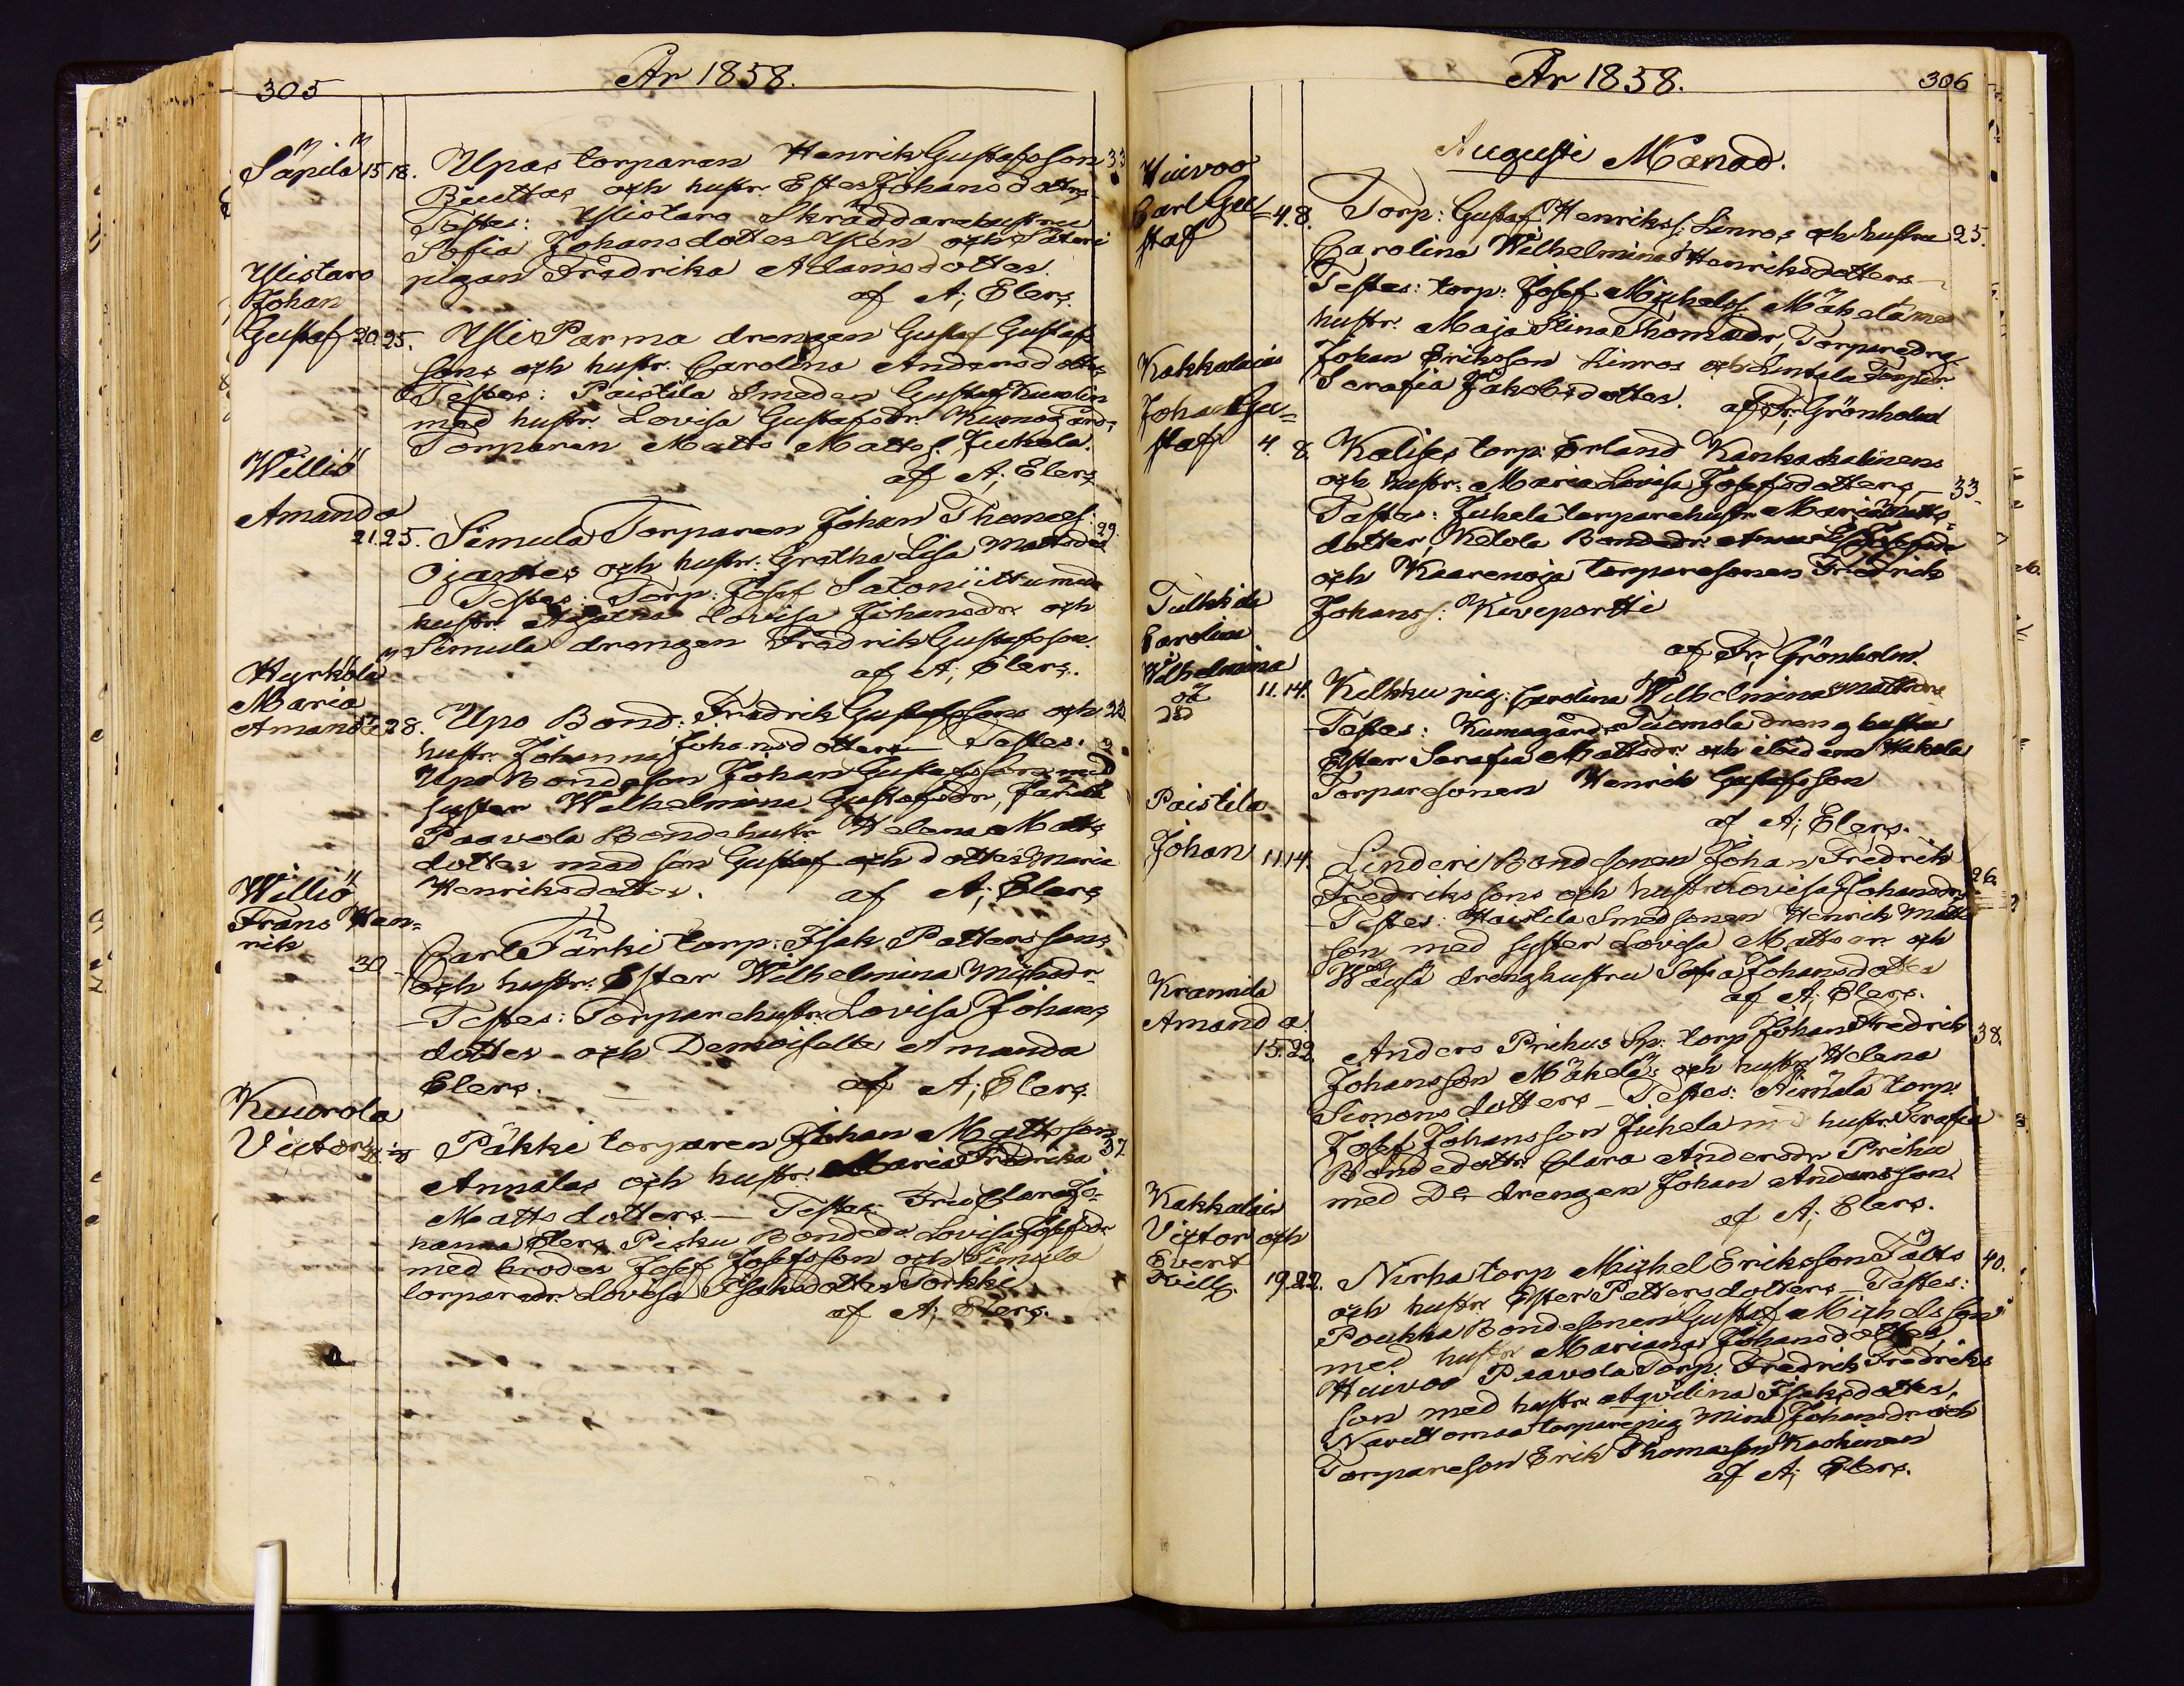 305
År 1858.
Säpilä 15 18. Upas torparen Henrik Gustafsson 33
Buttas och hustr. Ester Johansdotters
Testes: Ylistaro Skräddarehustru
Sofia Johansdotter och Säteri
pigan Fredrika Adamsdotter.
af A; Elers.
Ylistaro
Johan
Gustaf 20 25. Yli Parma drengen Gustaf Gustaf-
sons och hustr. Carolina Andersdotters
Testes: Paistila Smeden Gustaf
med hustr. Lovisa Gustafsdr. Kumogårds
Torparen Matts Mattss. Juhala.
af A; Elers
Williö
Amanda
21. 25. Simula Torparen Johan Thomass: 29.
Ojantes och hustr. Gretha Lisa Mattsdrs
Testes: Torp: Josef Satoniittu med
hustr. Lovisa Johansdr och
Simula drengen Fredrik Gustafsson.
af A; Elers.
Hyrkölä
Maria
Amanda 28. Upo Bond: Fredrik Gustafssons och
hustr. Johanna Johansdotters Testes:
Upo Bondeson Johan Gustafsson med
syster Wilhelmina Gustafsdr,
Paavola Bondehustr. Helena Matts
dotter med son Gustaf och dotter Maria
Henriksdotter. af A; Elers
Williö
Frans Hen-
rik
30 Carl Tärki torp: Isak Petterssons
och hustr. Ester Wilhelmina Michsdr
Testes: Torparehustr. Lovisa Johans
dotter och Demoiselle Amanda
Elers. af A; Elers.
Kuurola
Victor 28. Päkki torparen Johan Mattsson 37
Annalas och hustr. Maria Fredrika
Mattsdotters Testes: Fru Clara Jo-
hanna Elers, Pisku Bondedr. Lovisa Josefsdr
med broder Josef Josefsson och Simula
torparedr. Lovisa Isaksdotter Torkki
af A; Elers.
År 1858.
306
Augusti Månad.
Huivoo
Carl Gu=
staf 4. 8. Torp: Gustaf Henrikss: Linros och hustru 25.
Carolina Wilhelmina Henriksdotters
Testes: torp: Josef Michelss: Mäkelä med
hustr. Maja Stina Thomadr, Torparedrg
Johan Eriksson Linros och torpdr
Serafia Jakobsdotter. af Fr; Grönholm
Kakkalais
Johan Gu=
staf 4. 8. Kalises torp: Erland Kankaskalinens
och hustr. Maria Lovisa Josefsdotters 33
Testes: Juhala torparehustr Maria Matts
dotter, Ketola Bondedr
och Kaarenoja torparesonen Fredrik
Johanss: Kiveportti
af Fr; Grönholm.
Tulkkila
Carolina
Wilhelmina
oä 11. 14. Kilkku pig: Carolina Wilhelmina Mattsdrs
Testes: Kumogårds Tuomola dreng hustru
Ester Serafia Mattsdr och ibidem Hakola
Torparesonen Henrik Gustafsson
af A; Elers.
Paistila
Johan 11 14. Linderi Bondsonen Johan Fredrik 26.
Fredrikssons och hustr Lovisa Johansdrs
Testes: Haistila Smedsonen Henrik Matts
son med syster Lovisa Mattsdr och
drenghustru Sofia Johansdotter
af A; Elers.
Krannila
Amanda
15. 22. Anders Prihus Sp: torp Johan Fredrik 38.
Johansson Mäkelä och hustr Helena
Simonsdotters Testes: Äimälä torp:
Josef Johansson Juhela med hustr. Serafia
Bondedottr. Clara Andersdr Prihu
med Do drengen Johan Andersson
af A; Elers.
Kakkalais
Victor och
Evert
Vill 19. 22. Nirha torp Michel Eriksson Fält 40.
och hustr Ester Pettersdotters Testes:
Poukka Bondesonen Gustaf Michelsson
med hustr Mariana Johansdotter,
Huivoo Paavola Torp: Fredrik Fredriks
son med hustr Aqvilina Isaksdotter,
torparepig Mina Johansdr och
Torpareson Erik Thomasson
af A; Elers.